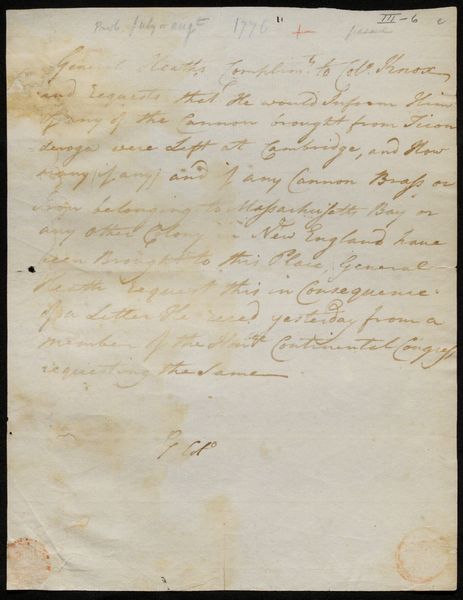 Prob. July or augt 1776 " III-6 c
General Heaths Complimts to Colo. Knox
and Requests that He would Inform Him
if any of the Cannon brought from Ticon
deroga were Left at Cambridge, and How
many (if any) and if any Cannon Brass or
Iron belonging to Massachusetts Bay or
any other Colony in New England have
been Brought to this Place, General
Heath Request this in Consequence
of a Letter He Recd yesterday from a
member of the Honle Continental Congress
requesting the Same